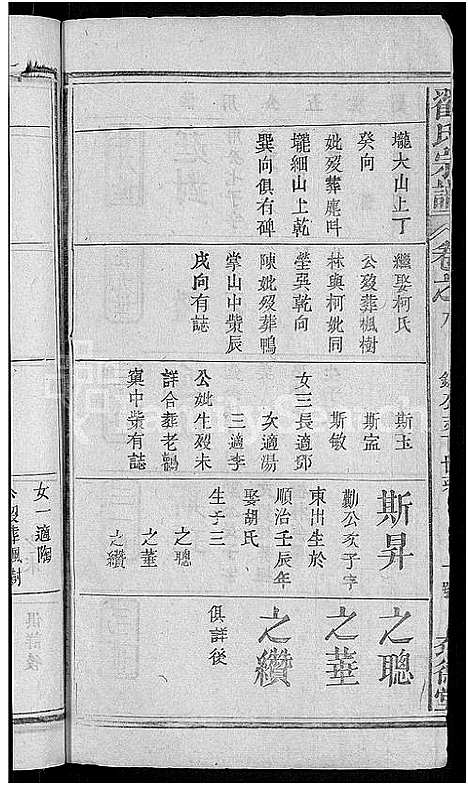 翟氏宗譜
卷之八
壠大山上丁
癸向
妣歿葬鹿叫
壠細山上乾
巽向俱有碑
繼娶柯氏
公歿葬楓樹
林與柯妣同
塋巽乾向
陳妣歿葬鴨
掌山中塋辰
戌向有誌
斯玉
斯宓
斯敏
女三長適鄧
次適湯
三適李
公妣生歿未
詳合葬老鸛
窠中塋有誌
斯昇
勷公次子字
東出生於
順治壬辰年
娶胡氏
生子三
之聰
之華
之纘
之聰
之華
之纘
俱詳後
女一適陶
公歿葬楓樹
俱詳後